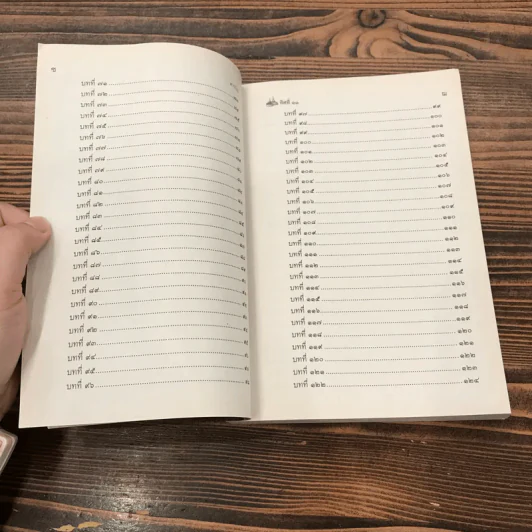 บทที่ ๗๑
บทที่ ๗๒
บทที่ ๗๓
บทที่ ๗๔
บทที่ ๗๕
บทที่ ๗๖
บทที่ ๗๗
บทที่ ๗๘
บทที่ ๗๙
บทที่ ๘๐
บทที่ ๘๑
บทที่ ๘๒
บทที่ ๘๓
บทที่ ๘๔
บทที่ ๘๕
บทที่ ๘๖
บทที่ ๘๗
บทที่ ๘๘
บทที่ ๘๙
บทที่ ๙๐
บทที่ ๙๑
บทที่ ๙๒
บทที่ ๙๓
บทที่ ๙๔
บทที่ ๙๕
บทที่ ๙๖
บทที่ ๙๗ ๙๙
บทที่ ๙๘ ๑๐๐
บทที่ ๙๙ ๑๐๑
บทที่ ๑๐๐ ๑๐๒
บทที่ ๑๐๑ ๑๐๓
บทที่ ๑๐๒ ๑๐๔
บทที่ ๑๐๓ ๑๐๕
บทที่ ๑๐๔ ๑๐๖
บทที่ ๑๐๕ ๑๐๗
บทที่ ๑๐๖ ๑๐๘
บทที่ ๑๐๗ ๑๐๙
บทที่ ๑๐๘ ๑๑๐
บทที่ ๑๐๙ ๑๑๑
บทที่ ๑๑๐ ๑๑๒
บทที่ ๑๑๑ ๑๑๓
บทที่ ๑๑๒ ๑๑๔
บทที่ ๑๑๓ ๑๑๕
บทที่ ๑๑๔ ๑๑๖
บทที่ ๑๑๕ ๑๑๗
บทที่ ๑๑๖ ๑๑๘
บทที่ ๑๑๗ ๑๑๙
บทที่ ๑๑๘ ๑๒๐
บทที่ ๑๑๙ ๑๒๑
บทที่ ๑๒๐ ๑๒๒
บทที่ ๑๒๑ ๑๒๓
บทที่ ๑๒๒ ๑๒๔